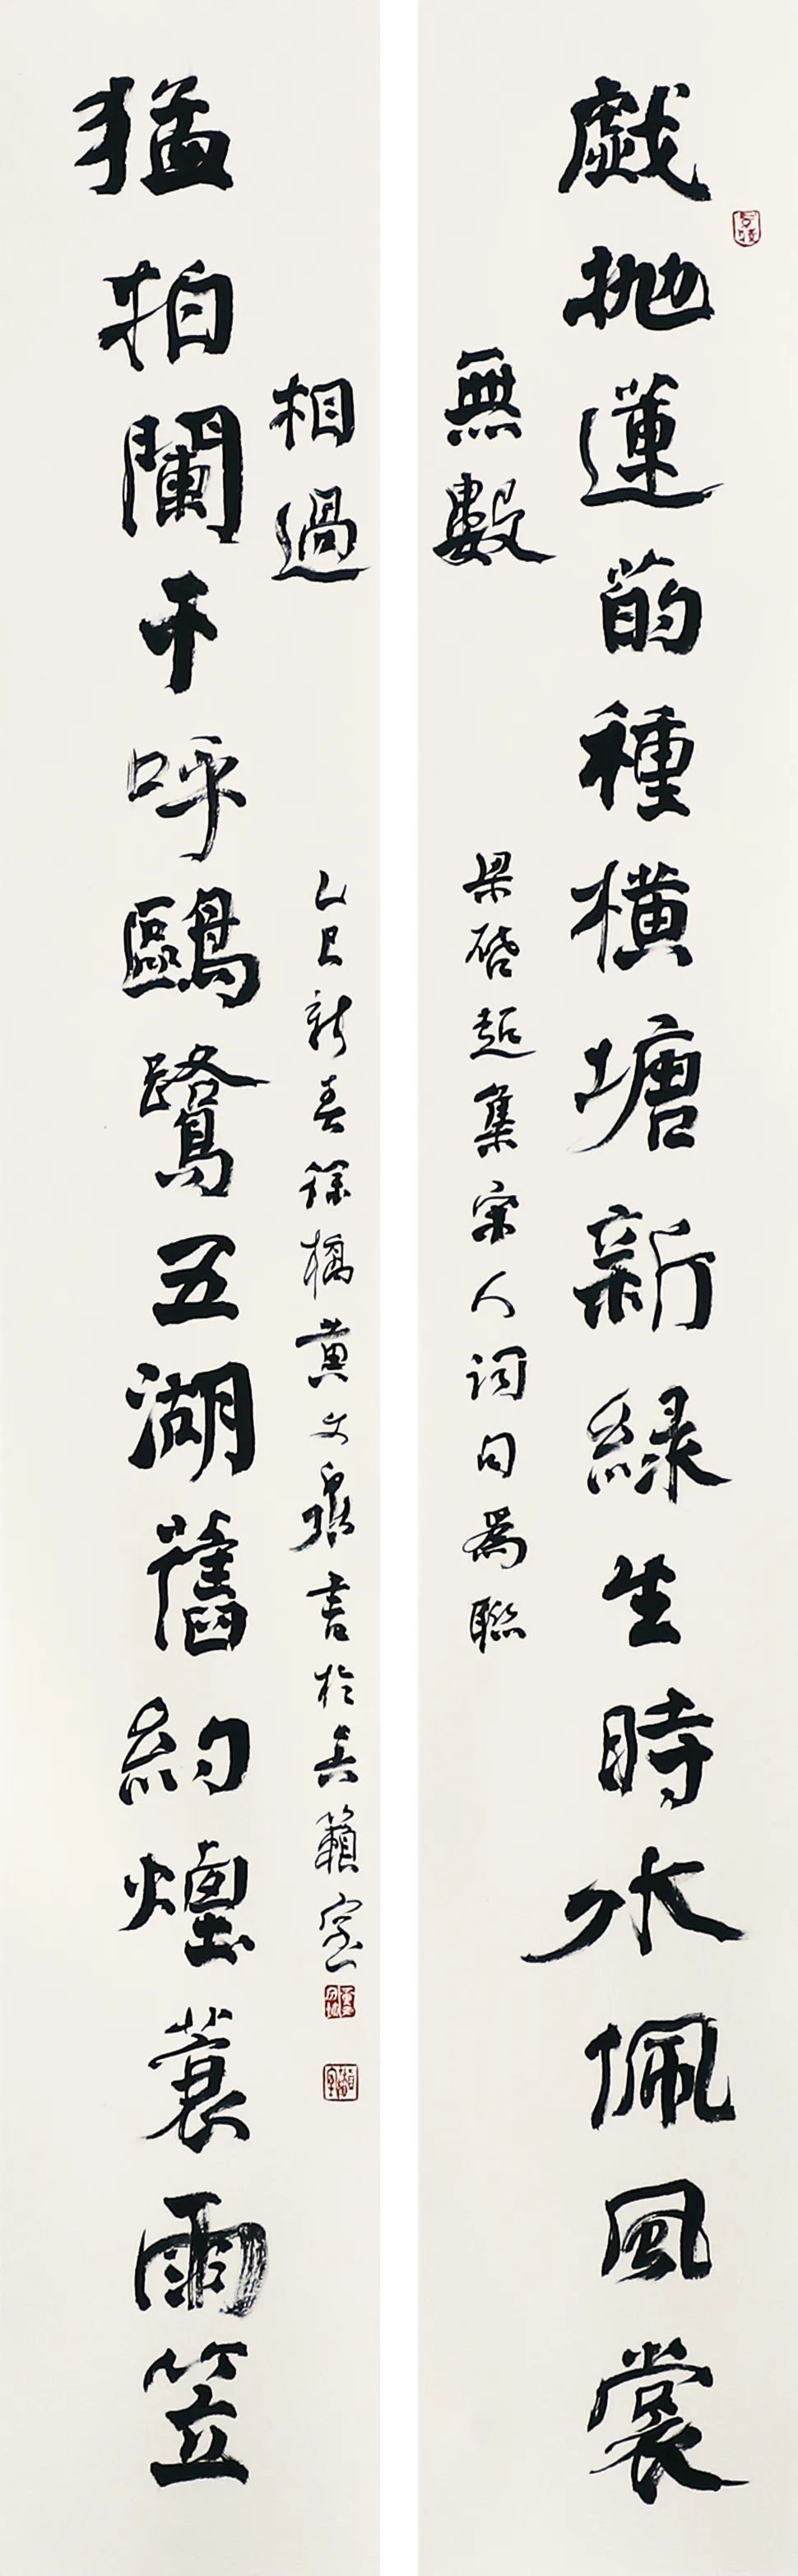 戲抛蓮菂種橫塘新綠生時水佩風裳
無數
梁啓超集宋人詞句爲聯
猛拍闌干呼鷗鷺五湖舊約煙蓑雨笠
相過
乙巳新春徐橋黃文泉書於籟室